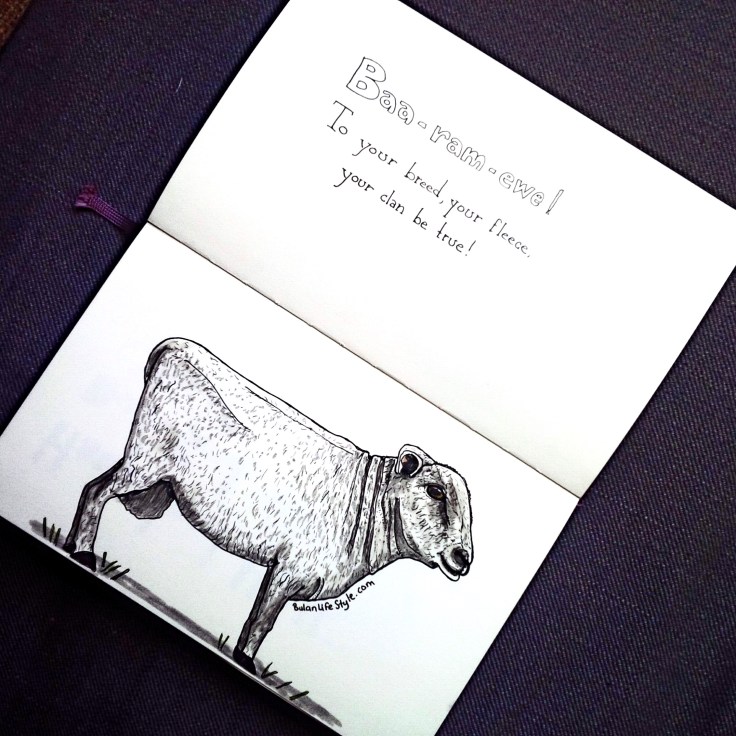 Baa-ram-ewe!
To your breed, your fleece,
your clan be true!
BulanLifeStyle.com